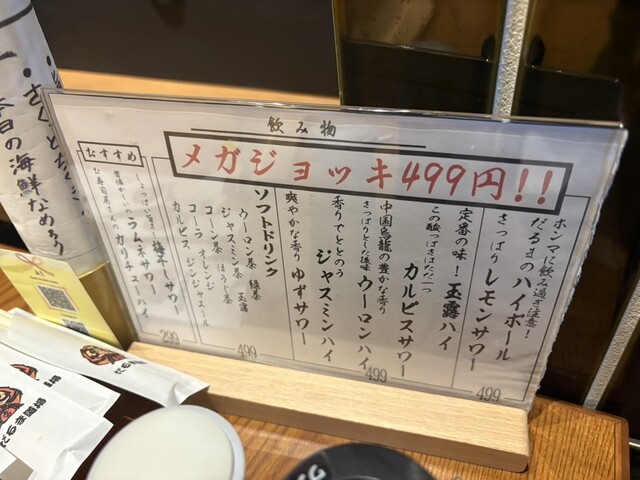 飲み物
メガジョッキ499円!!
ホンマに飲み過ぎ注意!
だるまのハイボール
さっぱりレモンサワー
499
定番の味!玉露ハイ
この酸っぱさはただ一つ
カルピスサワー
499
中国烏龍の豊かな香り
さっぱりとした後味ウーロンハイ
香りでととのう
ジャスミンハイ
爽やかな香りゆずサワー
499
ソフトドリンク
ウーロン茶 緑茶
ジャスミン茶 玉露
コーン茶 ほうじ茶
コーラ オレンジ
カルピス、ジンジャエール
299
おすすめ
サワー
ラムネサワー
お寿司屋さんのガリチューハイ
今日の海鮮なめろう